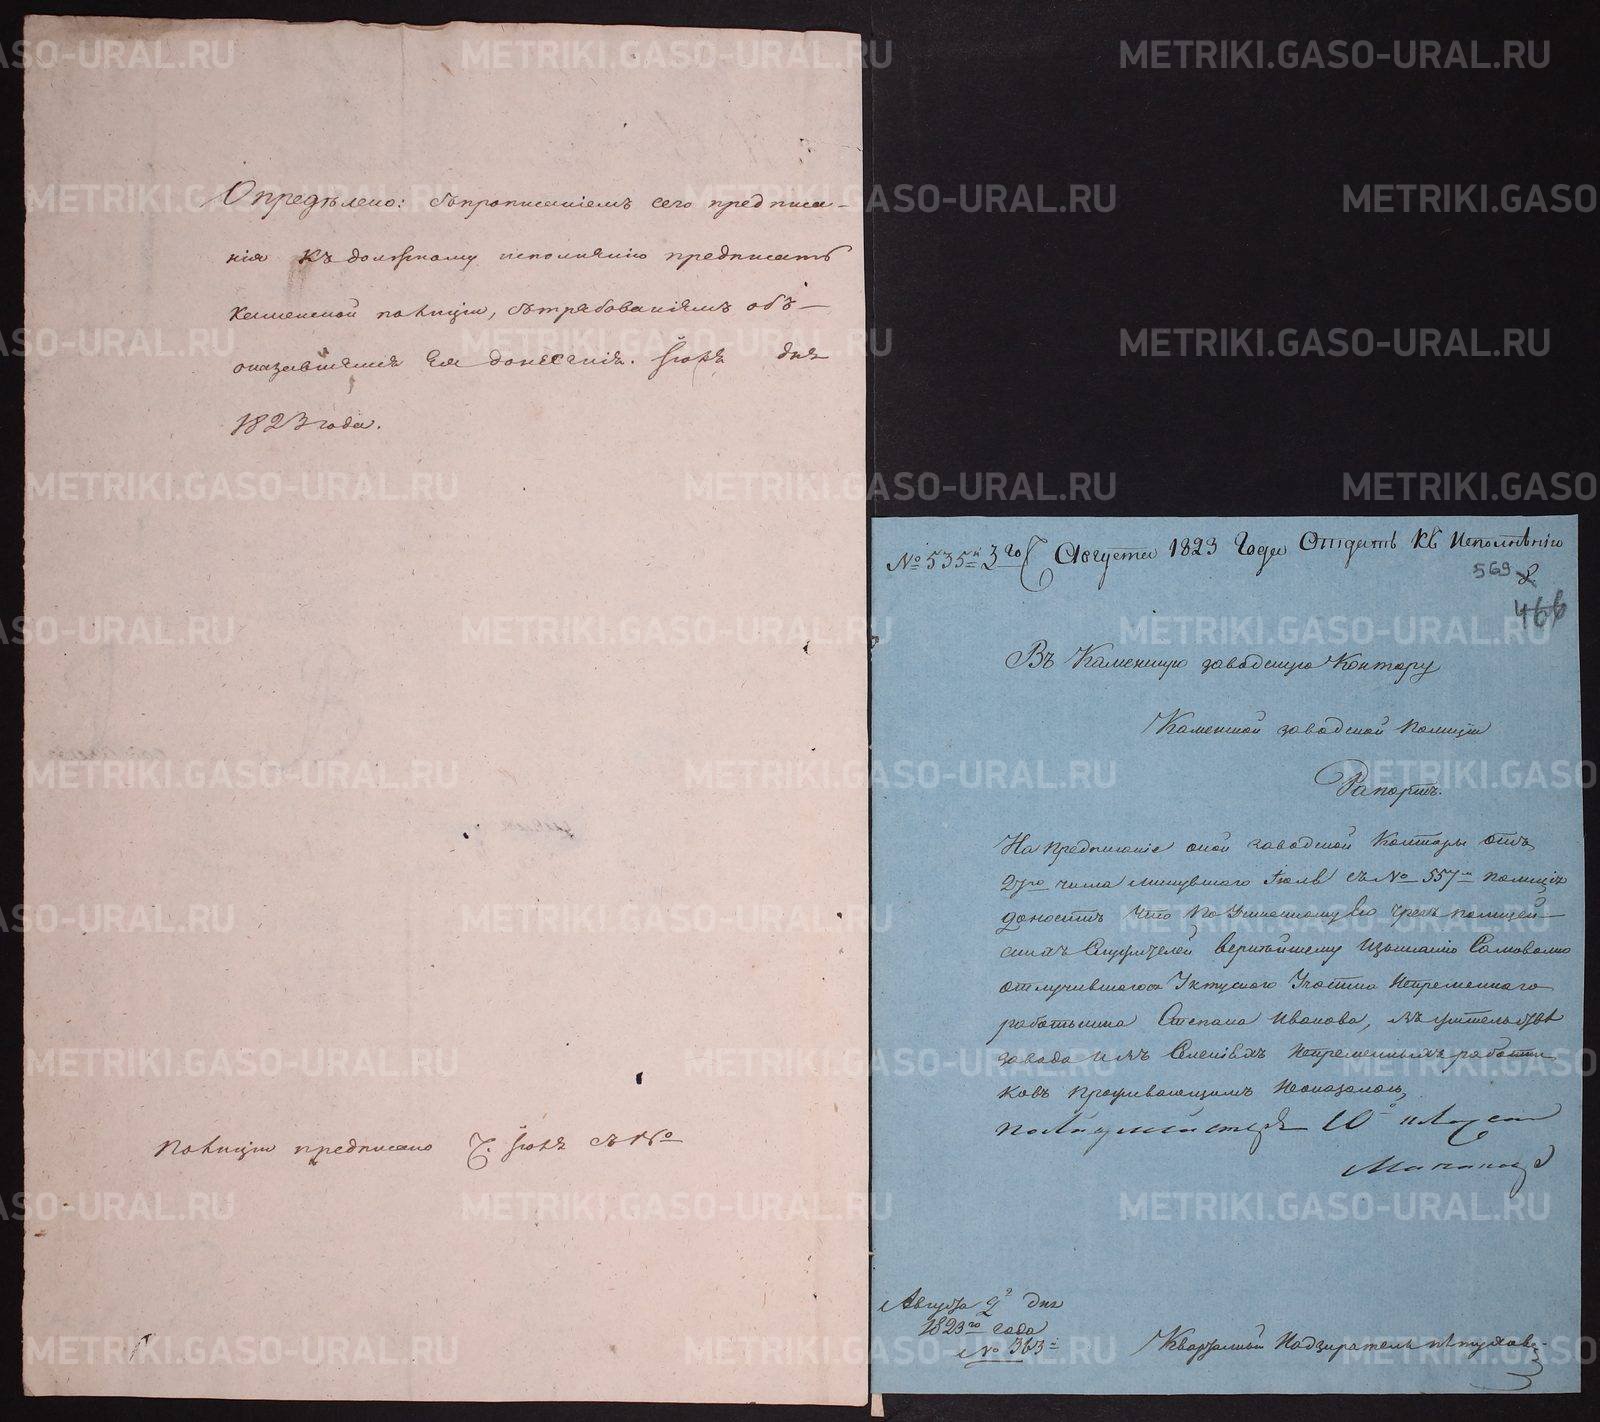 Опредѣлено: съпрописаніемъ сего предписа-
нія къ должному исполнѣнію предписать
каменской полиціи, сътрѣбованіямъ объ-
оказавшемся ея донесенія. Іюля дня
1823 года.
Полиціи предписано Ч. Іюля съ №
№ 535й 3го Августа 1823 Года Отдать къ Исполнѣнію
569
466
Въ Каменскую заводскую Контору
Каменской заводской Полиціи
Рапортъ.
На предписаніе оной заводской Конторы отъ
27го числа минувшаго Іюля съ № 557м полиція
доноситъ что по учиненному ею чрезъ полицей-
скихъ Служителей вернѣйшему изысканію Самовольно
отлучившагося Уктускаго Участка Непременнаго
работника Степана Иванова, въ жительствѣ
завода и въ Селеніяхъ Непременныхъ работни
ковъ Проживающимъ Неоказалось,
полицмейстеръ 10го класса
Августа 2го дня
1823го года
№ 363
Квартальный Надзиратель Пѣтуховъ
METRIKI.GASO-URAL.RU